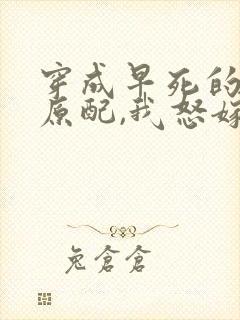 穿成早死的
原配,我怒嫁
兔仓仓